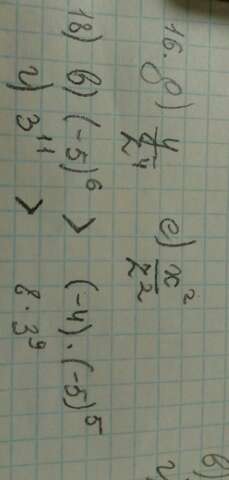 16. д) y/z⁴ е) x²/z²
18) в) (-5)⁶ > (-4)·(-5)⁵
г) 3¹¹ > 8·3⁹
в)